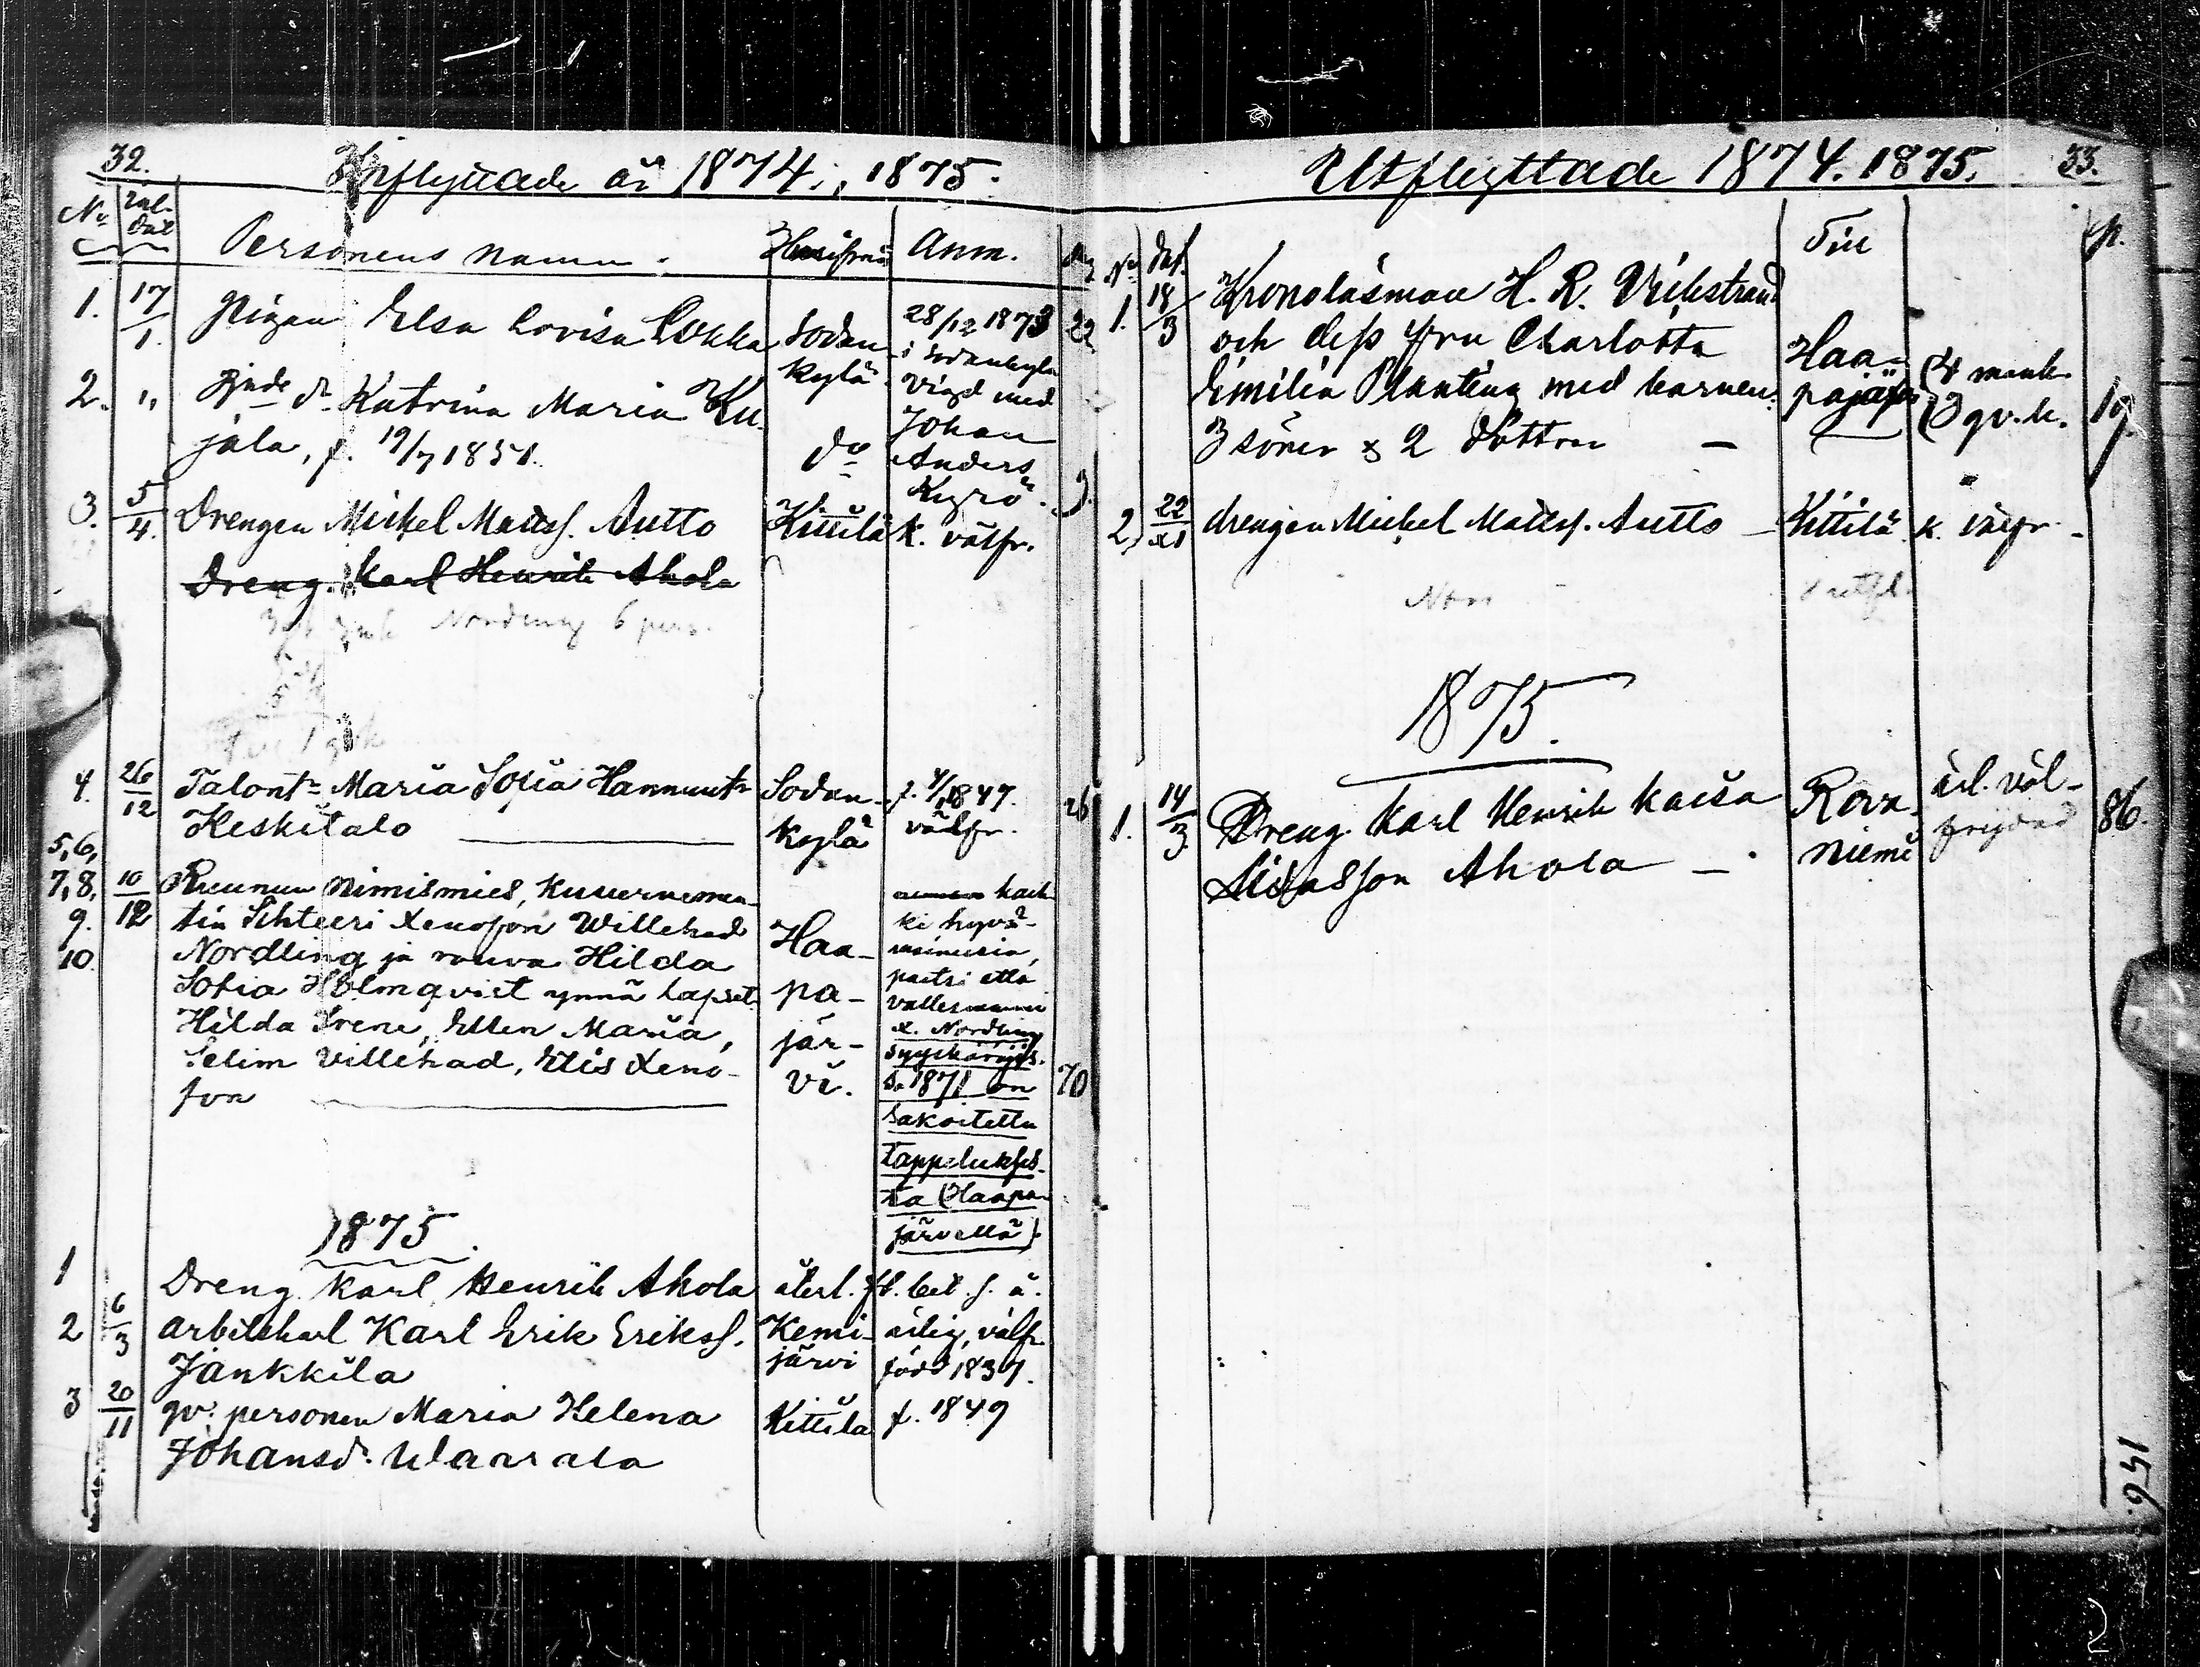 32.
Inflyttade år 1874, 1875.
No dat
Personens namn. Hvarifrån Anm.
1. 17/1. Pigan Elsa Lovisa Lokka Sodan-
kylä 28/12 1873
i Sodankylä
Vigd med
Johan
Anders
Kyrö. 22
2. " Katrina Maria Ku-
jala, f. 19/7 1851. do
3. 5/4. Drengen Mickel Matss. Autto Kittilä k. välfr.
Dreng. Karl Henrik Ahola
Nordling 6 pers.
4. 26/12 Talont:r Maria Sofia Hannunt:r Sodan- f. 1847.
Keskitalo kylä välfr. 26
5, 6,
7, 8,
9.
10.
10/12 Ruunun Nimismies, Kuuvernemen-
tin Sihteeri Xenofon Willehad
Nordling ja rouva Hilda
Sofia Holmqvist ynnä lapset
Hilda Irene, Ellen Maria,
Selim Villehad, Elis Xeno-
fon
Haa-
pa-
jär-
vi.
kaik
ki hyvä-
maineisia,
paitsi että
vallesmanni
X. Nordling
syyskäräjis-
sä 1871 on
sakoitettu
tappelukses-
ta (Haapa-
järvellä). 70
1875.
1 Dreng. Karl Henrik Ahola återl. fl. bet. s. å.
2 6/3 arbetskarl Karl Erik Erikss. Kemi- ärlig, välfr.
Jankkila järvi född 1837.
3 20/11 qv. personen Maria Helena Kittilä f. 1849
Johansd. Ulaarala
Utflyttade 1874. 1875. 33.
No dat. Till p.
1. 18/3 Kronolänsman H. R. Vickstrand
och dess fru Charlotta
Emilia Planting med barnen:
3 söner & 2 döttrar —
Haa-
pajärvi
4 mank.
3 qv.k. 19.
2) 22/XI drengen Mickel Matss. Autto — Kittilä k. välfr. -
utfl.
1875.
1. 14/3 Dreng. Karl Henrik Kaisa Rova- ärl. väl-
Liisasson Ahola — niemi frejdad 86.
156.